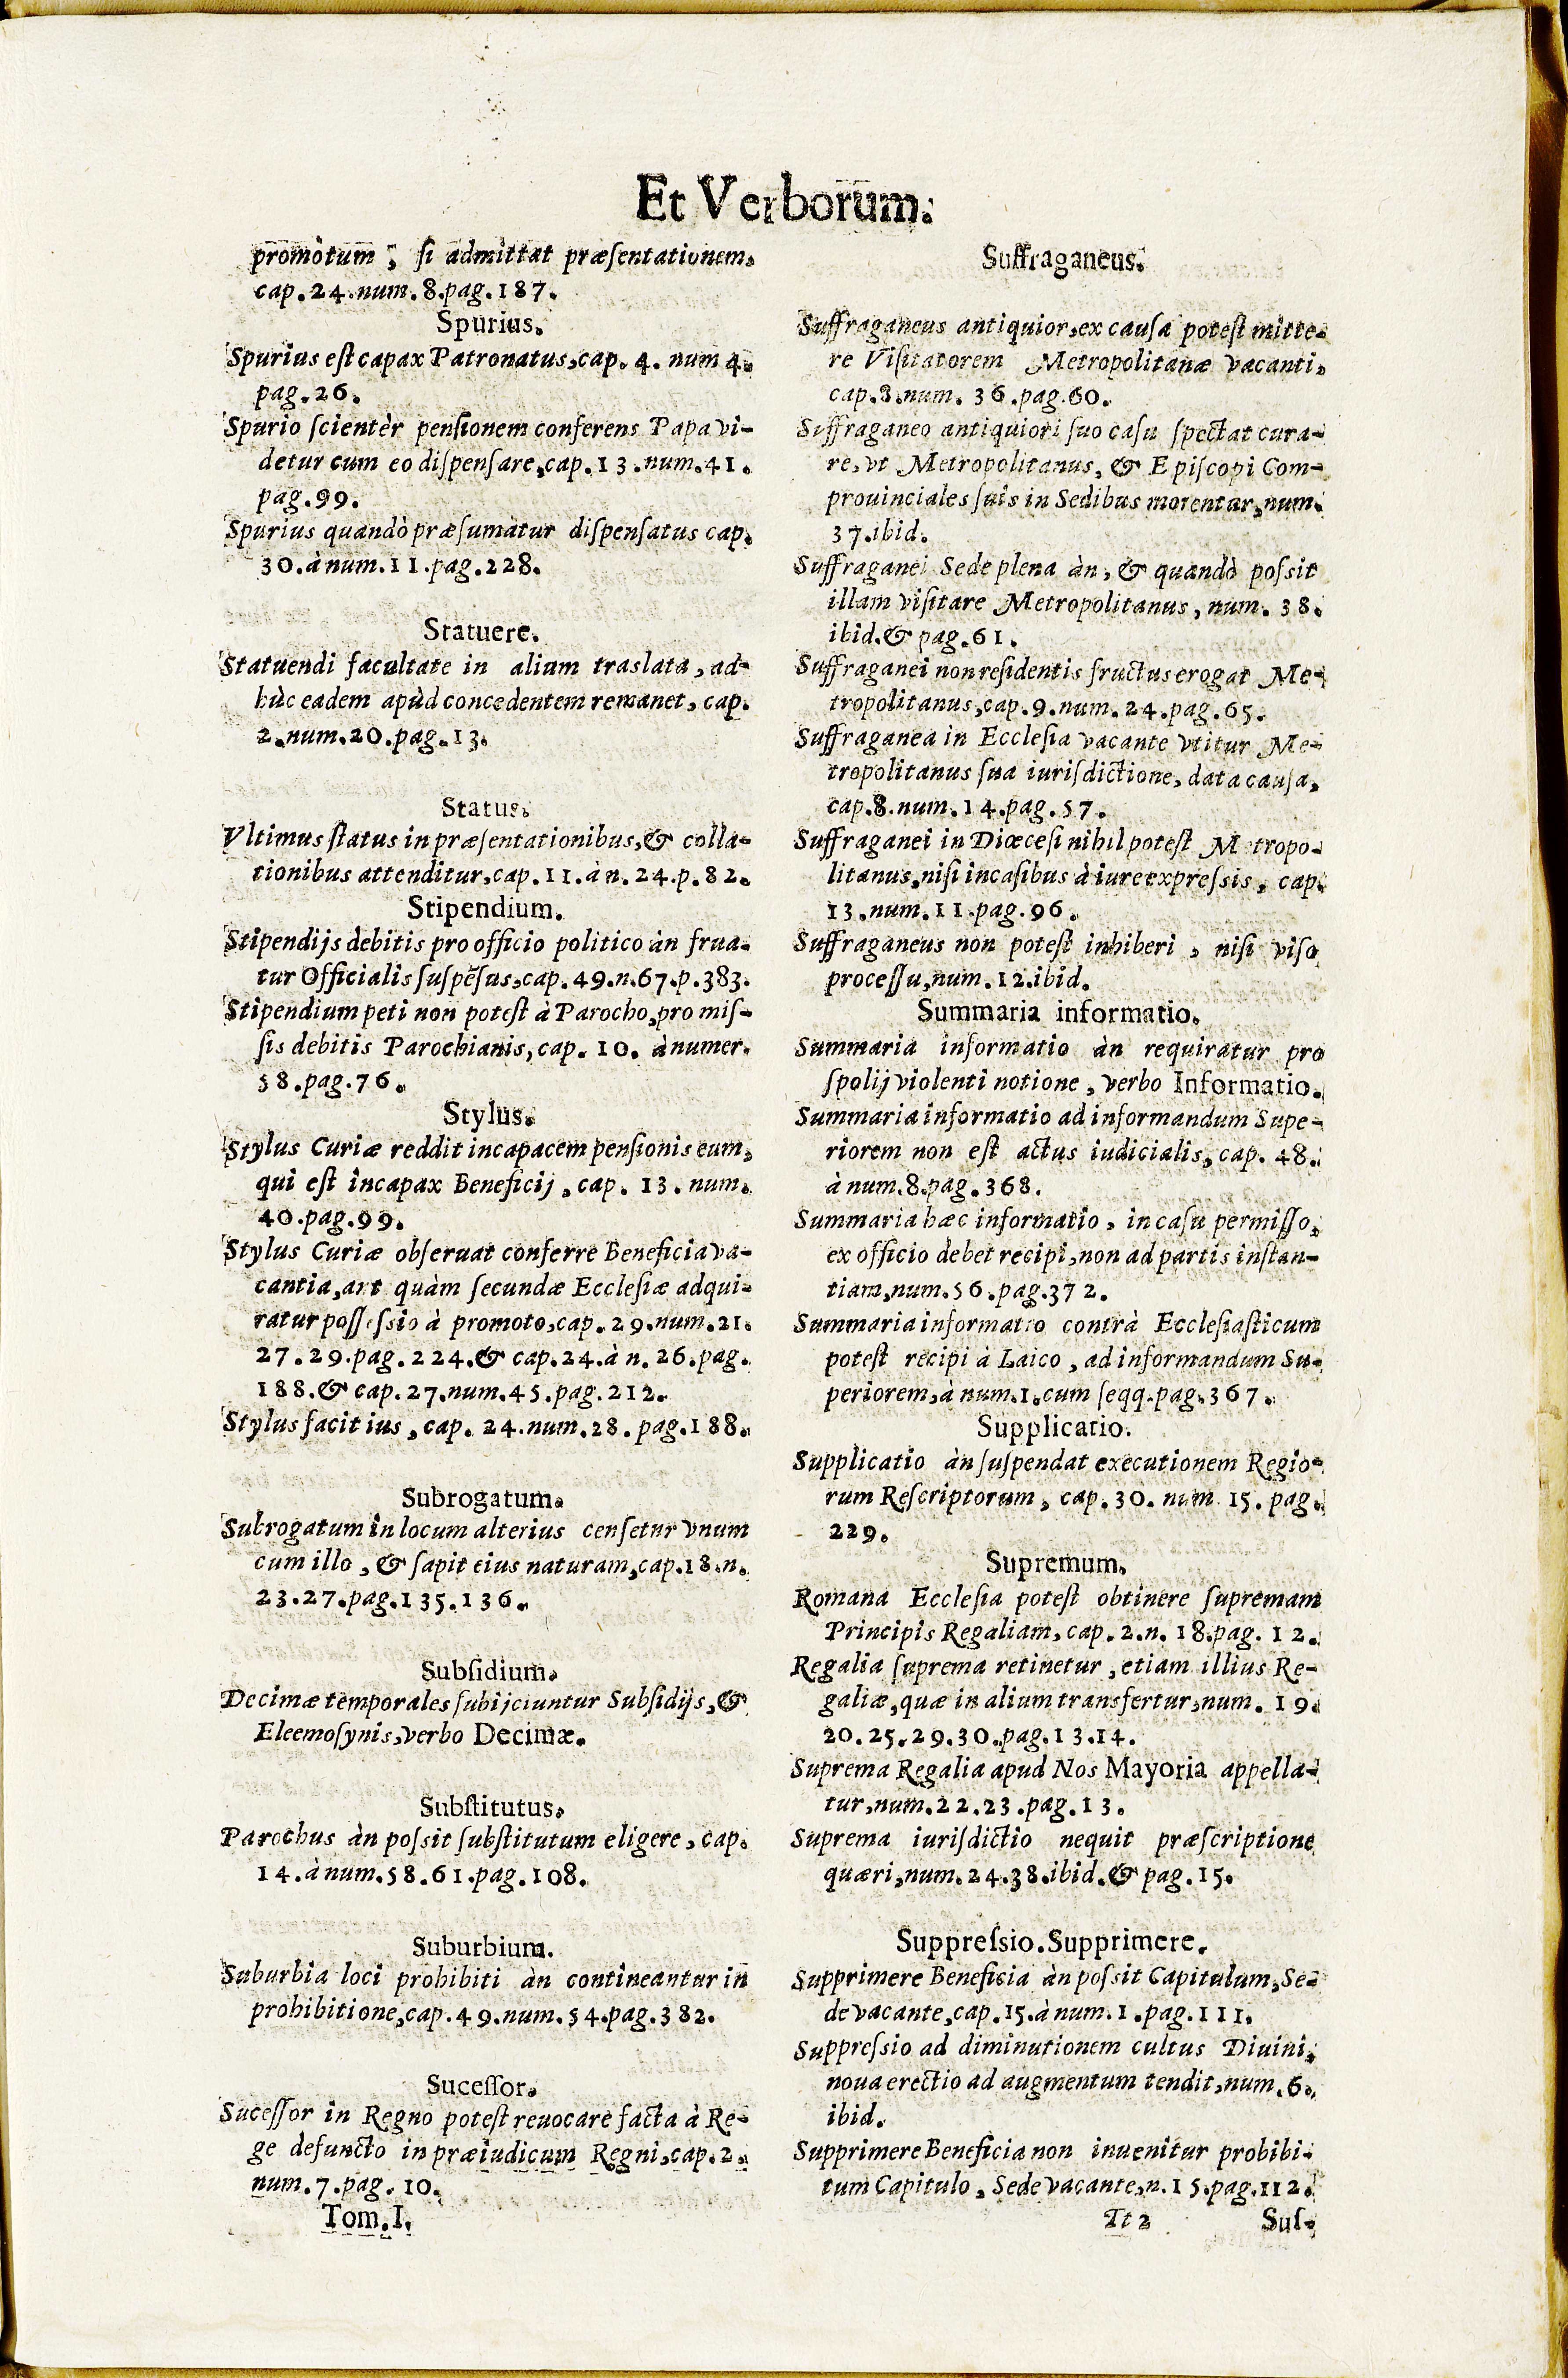 Et Verborum.
promotum, ſi admittat præſentationem.
cap.24.num.8.pag.187.
Spurius.
Spurius eſt capax Patronatus,cap.4. num 4.
pag.26.
Spurio ſcientèr penſionem conferens Papa vi-
detur cum eo diſpenſare,cap.13.num.41.
pag.99.
Spurius quandò præſumatur diſpenſatus cap.
30.à num.11.pag.228.
Statuere.
Statuendi facultate in alium traslata, ad-
hùc eadem apùd concedentem remanet, cap.
2.num.20.pag.13.
Status.
Vltimus ſtatus in præſentationibus,& colla-
tionibus attenditur,cap.11.à n.24.p.82.
Stipendium.
Stipendijs debitis pro officio politico àn frua-
tur Officialis ſuſpẽſus,cap.49.n.67.p.383.
Stipendium peti non poteſt à Parocho,pro miſ-
ſis debitis Parochianis, cap. 10. à numer.
58.pag.76.
Stylus.
Stylus Curiæ reddit incapacem penſionis eum,
qui eſt incapax Beneficij, cap. 13. num.
40.pag.99.
Stylus Curiæ obſeruat conferre Beneficia va-
cantia,ant quàm ſecundæ Eccleſiæ adqui-
ratur poſſeſsio à promoto,cap.29.num.21.
27.29.pag.224.& cap.24.à n.26.pag.
188.& cap.27.num.45.pag.212.
Stylus facit ius, cap. 24.num.28. pag.188.
Subrogatum.
Subrogatum in locum alterius cenſetur vnum
cum illo, & ſapit eius naturam,cap.18.n.
23.27.pag.135.136.
Subſidium.
Decimæ temporales ſubijciuntur Subſidijs,&
Eleemoſynis,verbo Decimæ.
Subſtitutus.
Parochus àn poſsit ſubſtitutum eligere, cap.
14.à num.58.61.pag.108.
Suburbium.
Suburbia loci prohibiti àn contineantur in
prohibitione,cap.49.num.54.pag.382.
Suceſſor.
Suceſſor in Regno poteſt reuocare facta à Re-
ge defuncto in præiudicum Regni,cap.2.
num.7.pag.10.
Tom.I.
Suffraganeus.
Suffraganeus antiquior,ex cauſa poteſt mitte-
re Viſitatorem Metropolitanæ vacanti,
cap.8.num.36.pag.60.
Suffraganeo antiquiori ſuo caſu ſpectat cura-
re, vt Metropolitanus, & Epiſcopi Com-
prouinciales ſuis in Sedibus morentur,num.
37.ibid.
Suffraganei Sede plena àn, & quandò poſsit
illam viſitare Metropolitanus, num. 38.
ibid.& pag.61.
Suffraganei non reſidentis fructus erogat Me-
tropolitanus,cap.9.num.24.pag.65.
Suffraganea in Eccleſia vacante vtitur Me-
tropolitanus ſua iuriſdictione, data cauſa,
cap.8.num.14.pag.57.
Suffraganei in Diœceſi nihil poteſt M tropo-
litanus,niſi in caſibus à iure expreſsis, cap.
13.num.11.pag.96.
Suffraganeus non poteſt inhiberi, niſi viſo
proceſſu,num.12.ibid.
Summaria informatio.
Summaria informatio àn requiratur pro
ſpolij violenti notione, verbo Informatio.
Summaria informatio ad informandum Supe-
riorem non eſt actus iudicialis, cap. 48.
à num.8.pag.368.
Summaria hæc informatio, in caſu permiſſo,
ex officio debet recipi,non ad partis inſtan-
tiam,num.56.pag.372.
Summaria informatio contrà Eccleſiaſticum
poteſt recipi à Laico, ad informandum Su-
periorem,à num.1.cum ſeqq.pag.367.
Supplicatio.
Supplicatio àn ſuſpendat executionem Regio-
rum Reſcriptorum, cap.30. num 15. pag.
229.
Supremum.
Romana Eccleſia poteſt obtinere ſupremam
Principis Regaliam,cap.2.n.18.pag.12.
Regalia ſuprema retinetur, etiam illius Re-
galiæ,quæ in alium transfertur,num.19.
20.25.29.30.pag.13.14.
Suprema Regalia apud Nos Mayoria appella-
tur,num.22.23.pag.13.
Suprema iuriſdictio nequit præſcriptione
quæri,num.24.38.ibid.& pag.15.
Suppreſsio.Supprimere.
Supprimere Beneficia àn poſsit Capitulum,Se-
de vacante,cap.15.à num.1.pag.111.
Suppreſsio ad diminutionem cultus Diuini,
noua erectio ad augmentum tendit,num.6.
ibid.
Supprimere Beneficia non inuenitur probibi-
tum Capitulo, Sede vacante,n.15.pag.112.
Tt 2
Suſ-